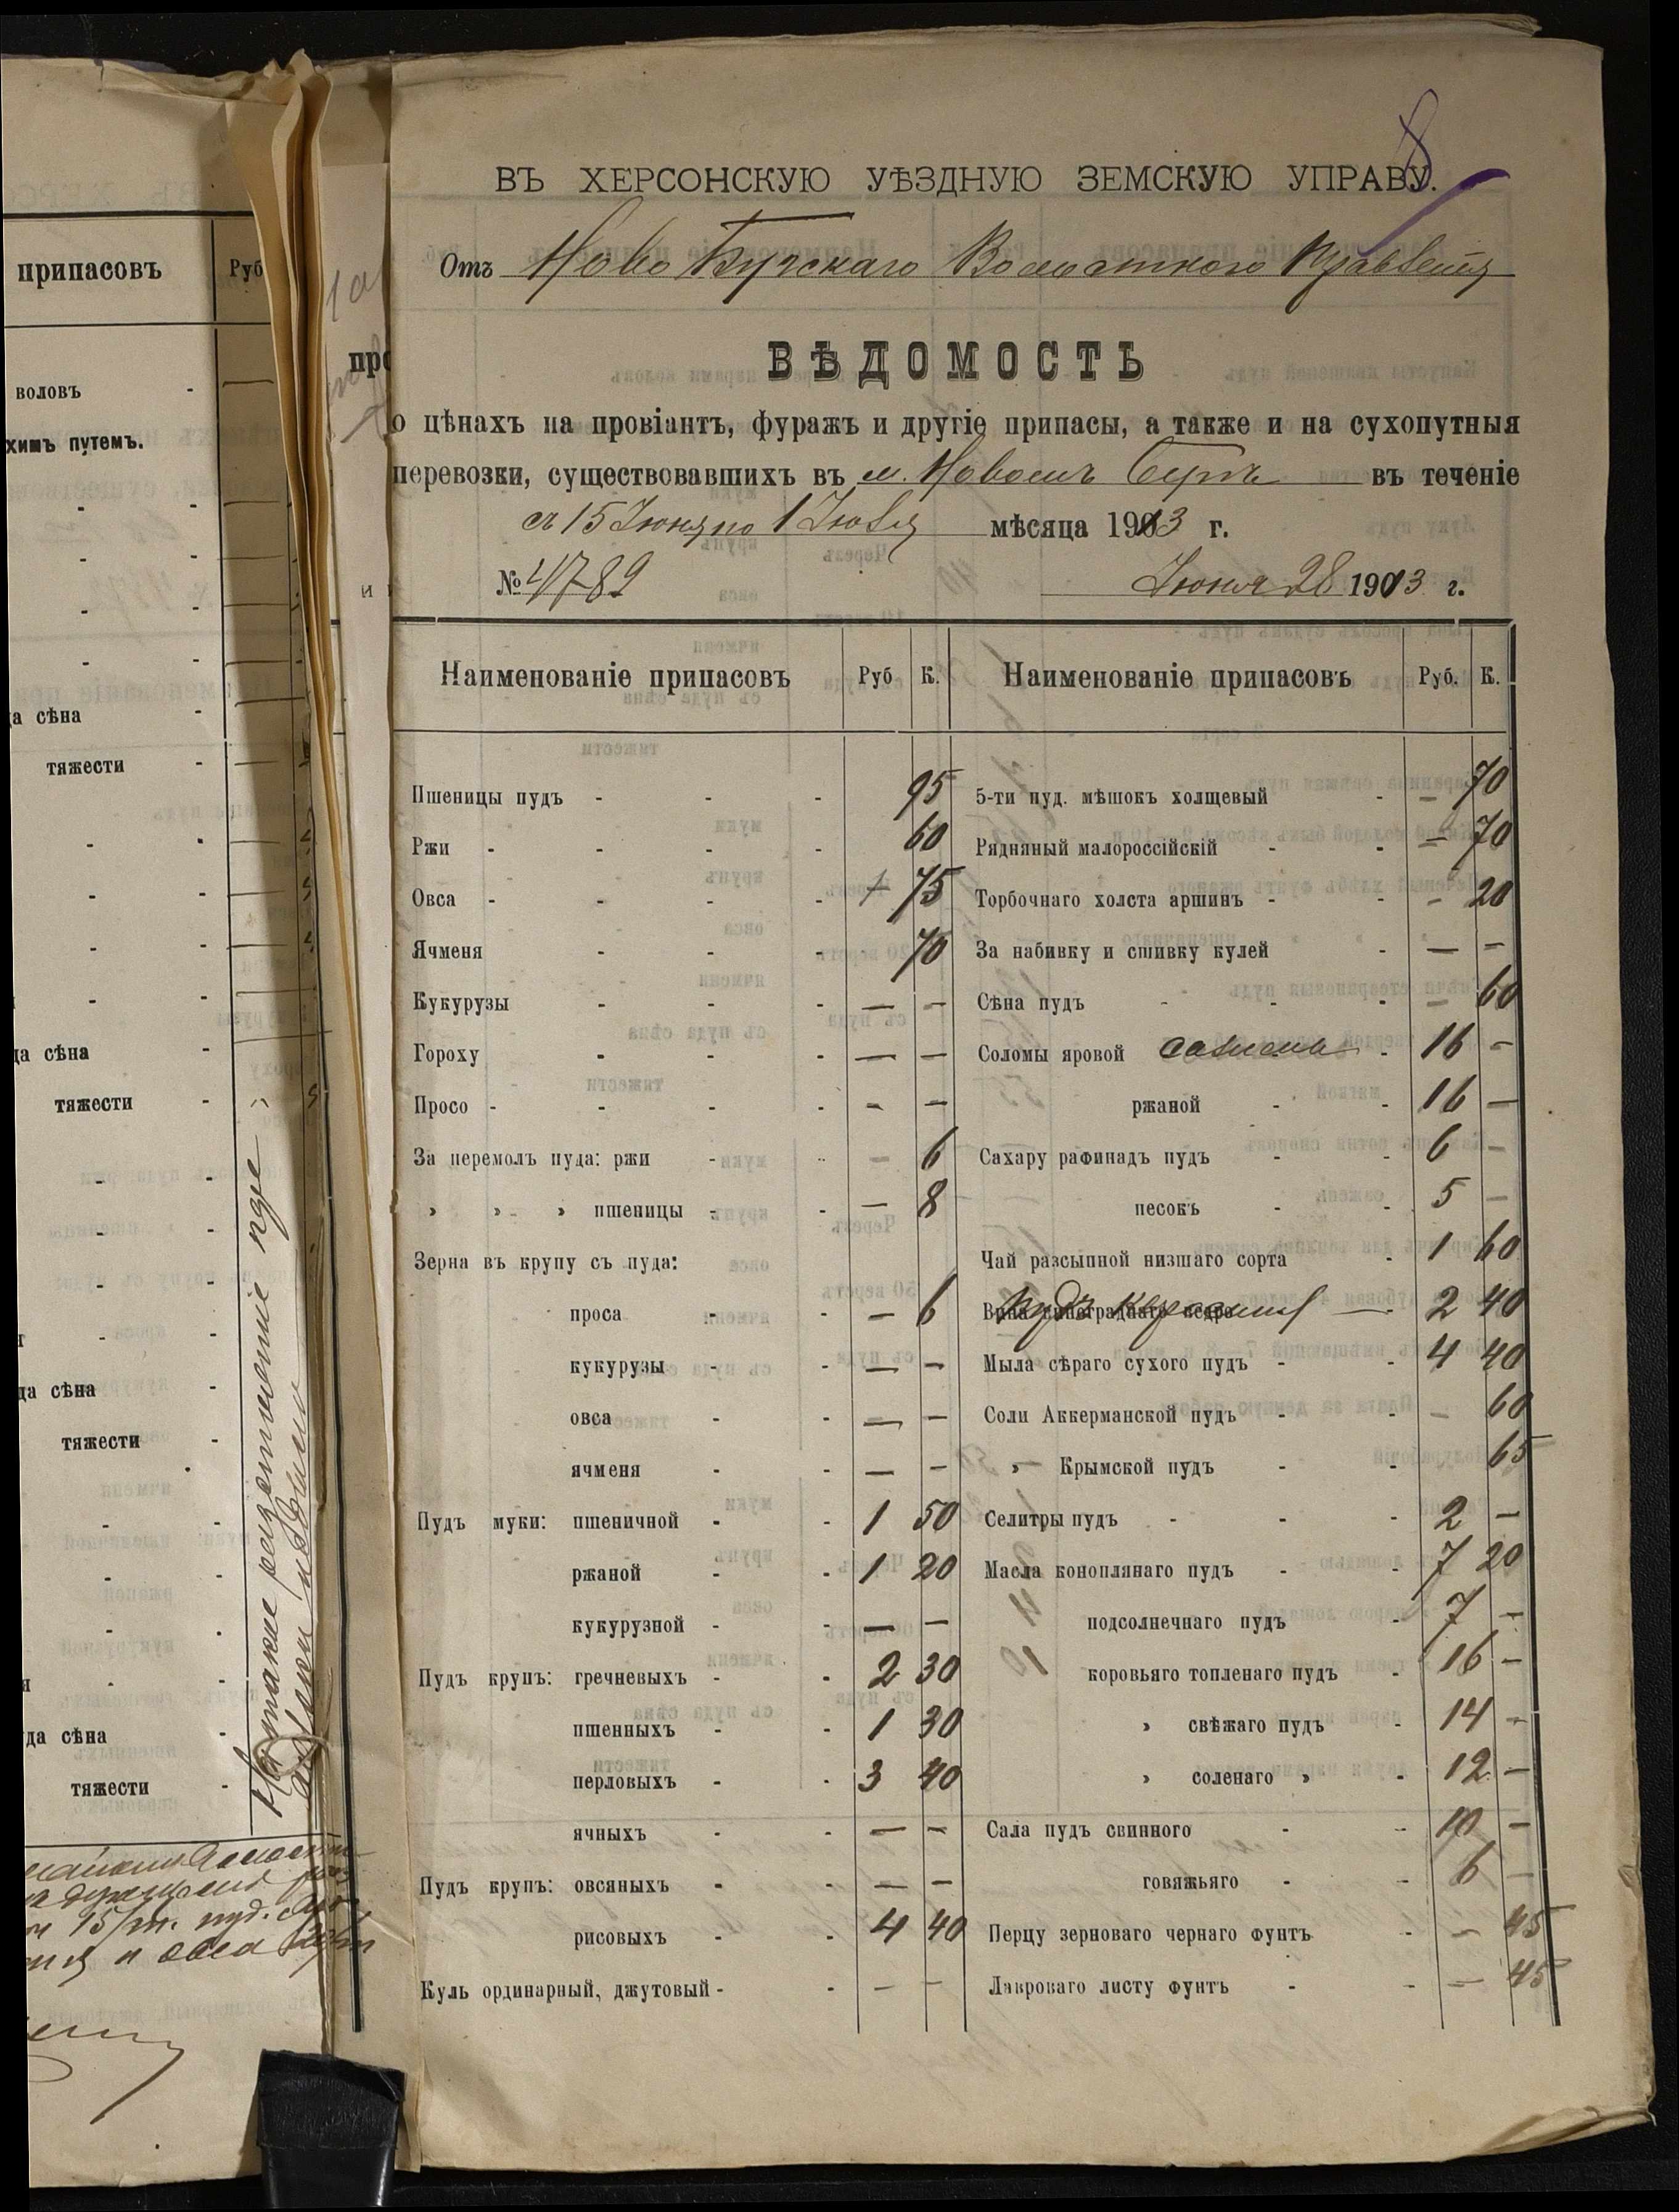 8
ВЪ ХЕРСОНСКУЮ УѢЗДНУЮ ЗЕМСКУЮ УПРАВУ.
Отъ Ново Бугскаго Волостного Правленія
ВѢДОМОСТЬ
о цѣнахъ на провіантъ, фуражъ и другіе припасы, а также и на сухопутныя
перевозки, существовавшихъ въ м. Новомъ Бугѣ въ теченіе
съ 15 Іюня по 1 Іюля мѣсяца 1913 г.
№ 4789 Іюня 28 1913 г.
Наименованіе припасовъ Руб К. Наименованіе припасовъ Руб. К.
Пшеницы пудъ - - - 95 5-ти пуд. мѣшокъ холщевый - — 70
Ржи - - - - 60 Рядняный малороссійскій - - — 70
Овса - - - - 75 Торбочнаго холста аршинъ - - - 20
Ячменя - - - 70 За набивку и сшивку кулей - — —
Кукурузы - - - — — Сѣна пудъ - - - — 60
Гороху - - - — — Соломы яровой сажень - 16 —
Просо - - - - — — ржаной - - 16 —
За перемолъ пуда: ржи - - — 6 Сахару рафинадъ пудъ - - 6 —
» » » пшеницы - - — 8 песокъ - - 5 —
Зерна въ крупу съ пуда: Чай разсыпной низшаго сорта - 1 60
проса - - — 6 Пудъ керосина — 2 40
кукурузы - - — — Мыла сѣраго сухого пудъ - - 4 40
овса - - — — Соли Аккерманской пудъ - - — 60
ячменя - - — — » Крымской пудъ - - 65
Пудъ муки: пшеничной - - 1 50 Селитры пудъ - - - 2 —
ржаной - - 1 20 Масла коноплянаго пудъ - - 7 20
кукурузной - - — — подсолнечнаго пудъ - 7 —
Пудъ крупъ: гречневыхъ - - 2 30 коровьяго топленаго пудъ - 16 —
пшенныхъ - - 1 30 » свѣжаго пудъ - 14 —
перловыхъ - - 3 40 » соленаго » - 12 —
ячныхъ - - — — Сала пудъ свинного - - 10 —
Пудъ крупъ: овсяныхъ - - — — говяжьяго - - 6 —
рисовыхъ - - 4 40 Перцу зерноваго чернаго фунтъ - — 45
Куль ординарный, джутовый - - — — Лавроваго листу фунтъ - - — 45
припасовъ Руб
воловъ -
химъ путемъ.
да сѣна -
тяжести -
да сѣна -
тяжести -
да сѣна -
тяжести -
да сѣна -
тяжести -
про
и